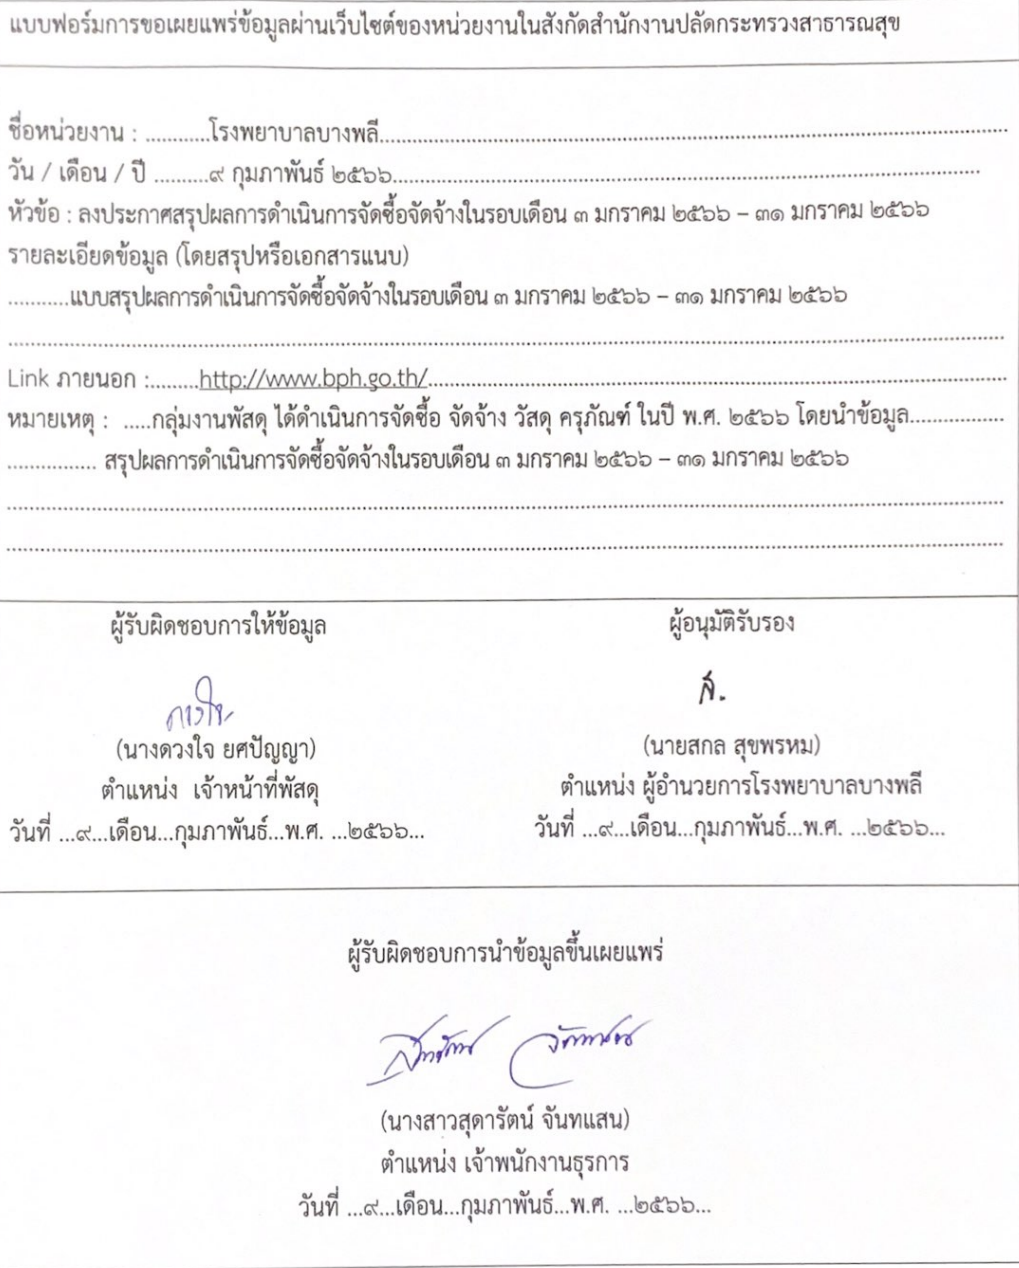 แบบฟอร์มการขอเผยแพร่ข้อมูลผ่านเว็บไซต์ของหน่วยงานในสังกัดสำนักงานปลัดกระทรวงสาธารณสุข
ชื่อหน่วยงาน : ...........โรงพยาบาลบางพลี...........
วัน / เดือน / ปี ..........๙ กุมภาพันธ์ ๒๕๖๖...........
หัวข้อ : ลงประกาศสรุปผลการดำเนินการจัดซื้อจัดจ้างในรอบเดือน ๓ มกราคม ๒๕๖๖ – ๓๑ มกราคม ๒๕๖๖
รายละเอียดข้อมูล (โดยสรุปหรือเอกสารแนบ)
...........แบบสรุปผลการดำเนินการจัดซื้อจัดจ้างในรอบเดือน ๓ มกราคม ๒๕๖๖ – ๓๑ มกราคม ๒๕๖๖
Link ภายนอก :.........http://www.bph.go.th/...........
หมายเหตุ : .....กลุ่มงานพัสดุ ได้ดำเนินการจัดซื้อ จัดจ้าง วัสดุ ครุภัณฑ์ ในปี พ.ศ. ๒๕๖๖ โดยนำข้อมูล.................
................ สรุปผลการดำเนินการจัดซื้อจัดจ้างในรอบเดือน ๓ มกราคม ๒๕๖๖ – ๓๑ มกราคม ๒๕๖๖
ผู้รับผิดชอบการให้ข้อมูล
ดวงใจ
(นางดวงใจ ยศปัญญา)
ตำแหน่ง เจ้าหน้าที่พัสดุ
วันที่ ...๙...เดือน...กุมภาพันธ์...พ.ศ. ...๒๕๖๖...
ผู้อนุมัติรับรอง
ส.
(นายสกล สุขพรหม)
ตำแหน่ง ผู้อำนวยการโรงพยาบาลบางพลี
วันที่ ...๙...เดือน...กุมภาพันธ์...พ.ศ. ...๒๕๖๖...
ผู้รับผิดชอบการนำข้อมูลขึ้นเผยแพร่
(นางสาวสุดารัตน์ จันทแสน)
ตำแหน่ง เจ้าพนักงานธุรการ
วันที่ ...๙...เดือน...กุมภาพันธ์...พ.ศ. ...๒๕๖๖...